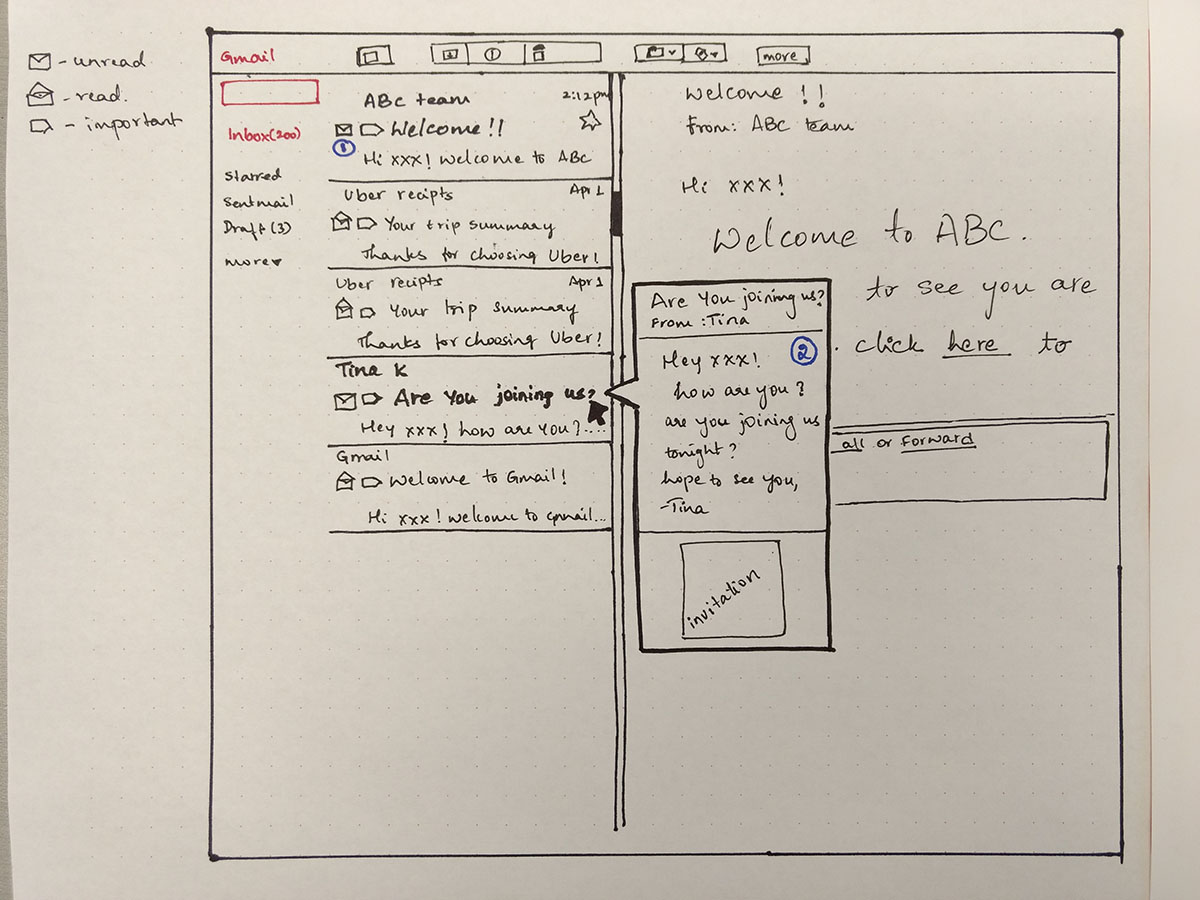 - unread
- read.
- important
Gmail
more
Inbox(200)
Starred
Sentmail
Draft (3)
more
ABC team
2:12pm
Welcome!!
1
Hi xxx! welcome to ABC
Uber recipts
Apr 1
Your trip summary
Thanks for choosing Uber!
Uber recipts
Apr 1
Your trip summary
Thanks for choosing Uber!
Tina K
Are You joining us?
Hey xxx! how are you?....
Gmail
Welcome to Gmail!
Hi xxx! welcome to gmail...
Welcome !!
From: ABC team
Hi xxx!
Welcome to ABC.
to see you are
. click here to
all or forward
Are You joining us?
From : Tina
2
Hey xxx!
how are you?
are you joining us
tonight?
hope to see you,
-Tina
invitation